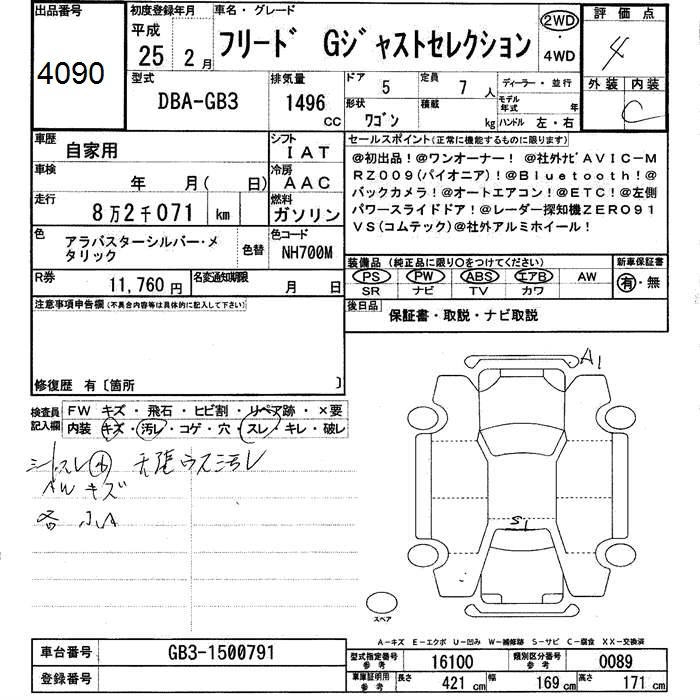 出品番号
4090
初度登録年月
平成
25 2月
車名・グレード
フリード Gジャストセレクション
2WD
・
4WD
評価点
4
外装 内装
C
型式
DBA-GB3
排気量
1496
cc
ドア
5
定員
7人
形状
ワゴン
積載
kg
ディーラー・並行
モデル年式 年
ハンドル 左・右
車歴
自家用
シフト
IAT
車検
年 月( 日)
冷房
AAC
走行
8万2千071 km
燃料
ガソリン
色
アラバスターシルバー・メ
タリック
色替
色コード
NH700M
R券
11,760円
名変通知期限
月 日
セールスポイント(正常に機能するものに限ります)
@初出品!@ワンオーナー!@社外ナビAVIC-M
RZ009(パイオニア)!@Bluetooth!@
バックカメラ!@オートエアコン!@ETC!@左側
パワースライドドア!@レーダー探知機ZERO91
VS(コムテック)@社外アルミホイール!
装備品(純正品に限り○をつけてください)
PS PW ABS エアB AW
SR ナビ TV カワ
新車保証書
有・無
後日品
保証書・取説・ナビ取説
注意事項申告欄(不具合内容等は具体的に記入して下さい)
修復歴 有〔箇所 〕
検査員
記入欄
FW キズ・飛石・ヒビ割・リペア跡・×要
内装 キズ・汚レ・コゲ・穴・スレ・キレ・破レ
天張ウス汚レ
AWキズ
各小A
A1
S1
スペア
A-キズ E-エクボ U-凹み W-補修跡 S-サビ C-腐食 XX-交換済
車台番号
GB3-1500791
登録番号
型式指定番号
参考
16100
類別区分番号
参考
0089
車庫証明用
参考
長さ 421cm
幅 169cm
高さ 171cm